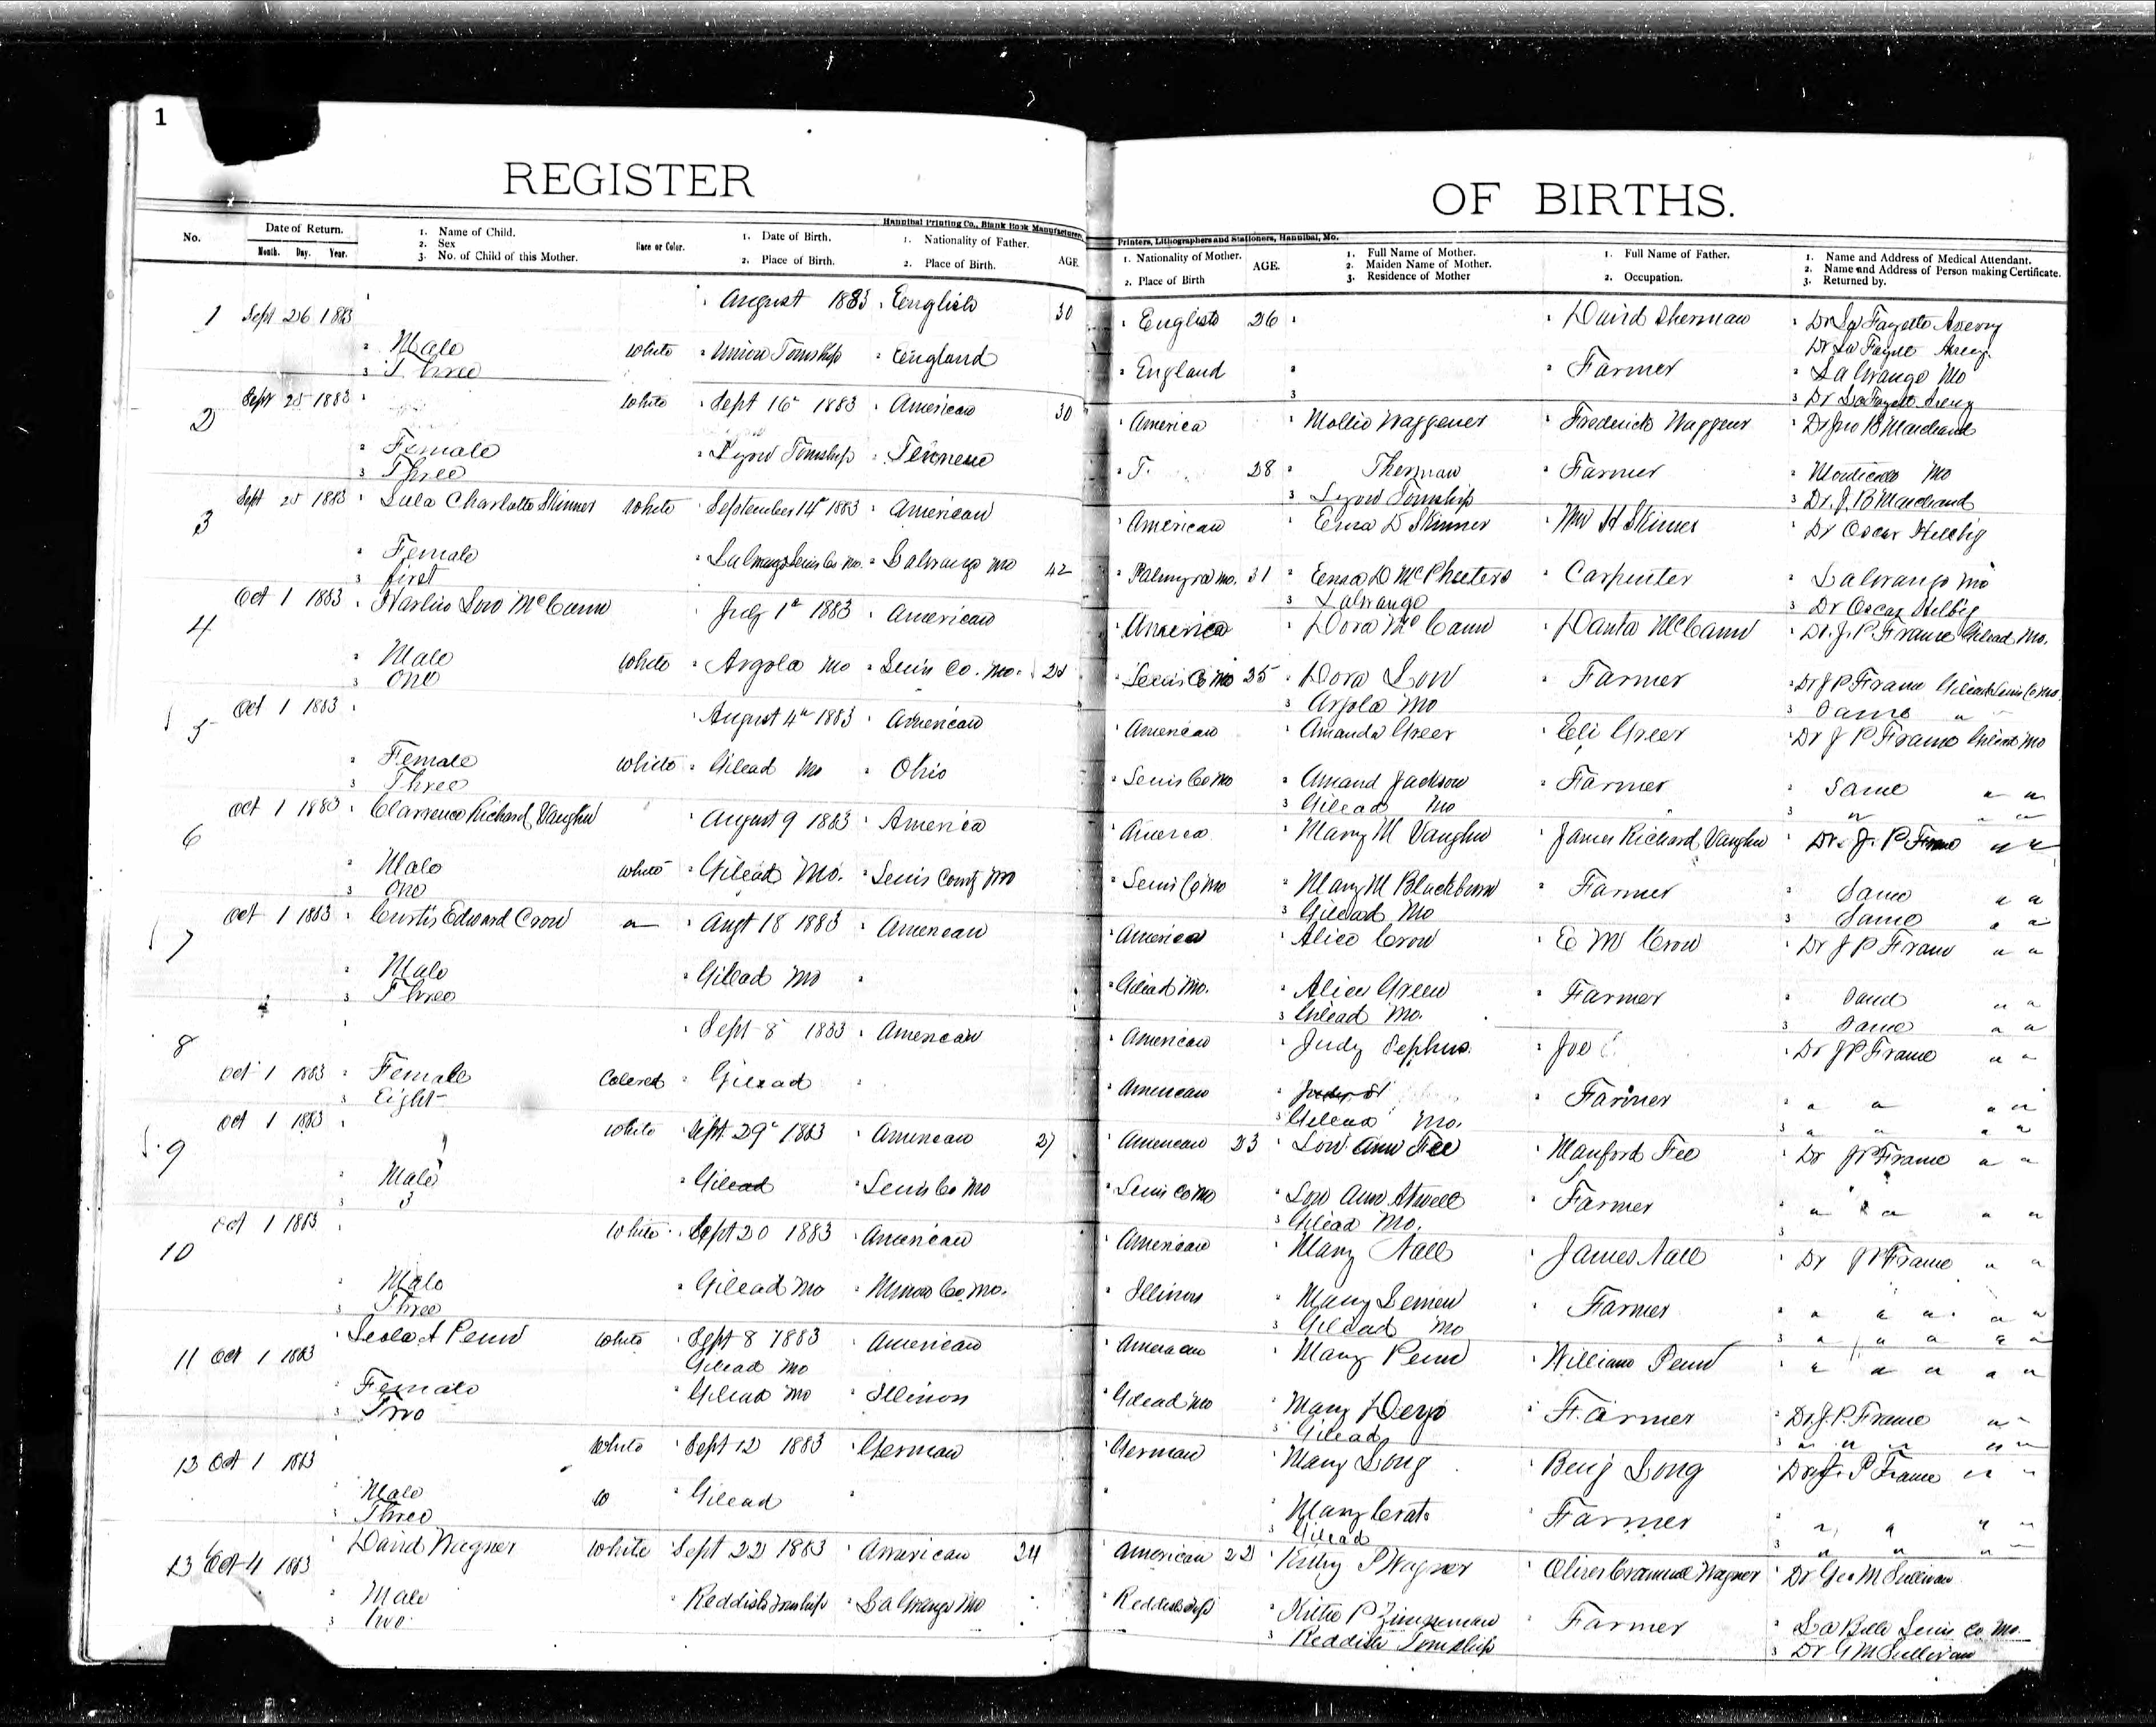 1
REGISTER OF BIRTHS.
Hannibal Printing Co., Blank Book Manufacturers,
Printers, Lithographers and Stationers, Hannibal, Mo.
No.
Date of Return.
Month. Day. Year.
1. Name of Child.
2. Sex
3. No. of Child of this Mother.
Race or Color.
1. Date of Birth.
2. Place of Birth.
1. Nationality of Father.
2. Place of Birth.
AGE
1. Nationality of Mother.
2. Place of Birth
AGE.
1. Full Name of Mother.
2. Maiden Name of Mother.
3. Residence of Mother
1. Full Name of Father.
2. Occupation.
1. Name and Address of Medical Attendant.
2. Name and Address of Person making Certificate.
3. Returned by.
1 Sept 26 1883 August 1883 English 30 English 26 David Sherman Dr La Fayette Avery
Dr La Fayett Avery
2 Male White Union Township England England Farmer LaGrange Mo
3 Three 3 3 Dr LaFayett Avery
2 Sept 25 1883 White Sept 16 1883 American 30 America Mollie Waggener Frederick Waggener Dr Jno B Marchand
Female Lyon Township T. 28 Farmer Monticello Mo
3 Three 3 Lyon Township 3 Dr. J. B Marchand
3 Sept 25 1883 Lula Charlotte Skinner White September 14 1883 American American Emma D Skinner Wm H Skinner Dr Oscar Helbig
Female LaGrange Lewis Co Mo. LaGrange Mo 42 Palmyra Mo. 31 Emma D McPheeters Carpenter LaGrange Mo
3 first 3 LaGrange 3 Dr Oscar Helbig
4 Oct 1 1883 Low McCann July 1st 1883 American America Dora McCann Danta McCann Dr. J. P. Frame Gilead Mo.
Male White Argola Mo Lewis Co. Mo. Lewis Co Mo 25 Dora Low Farmer Dr J P Frame Gilead Lewis Co Mo
3 One 3 Argola Mo 3 Same "
5 Oct 1 1883 August 4th 1883 American American Amanda Greer Eli Greer Dr J P Frame Gilead Mo
Female White Gilead Mo Ohio Lewis Co Mo Amand Jackson Farmer Same " "
3 Three 3 Gilead Mo 3 " " "
6 Oct 1 1883 Clarrence Richard Vaughn August 9 1883 America America Mary M Vaughn James Richard Vaughn Dr. J. P Frame " "
Male White Gilead Mo. Lewis County Mo Lewis Co Mo Mary M Blackburn Farmer Same " "
3 One 3 Gilead Mo 3 Same " "
7 Oct 1 1883 Curtis Edward Crow " Augt 18 1883 American America Alice Crow E M Crow Dr J P Frame " "
Male Gilead Mo Gilead Mo. Alice Green Farmer Same " "
3 Three 3 Gilead Mo. 3 Same " "
8 Sept 8 1883 American American Judy Sephus. Joe Dr J P Frame " "
Oct 1 1883 Female Colored Gilead American Farmer " " " "
3 Eight 3 Gilead Mo. 3 " " " "
9 Oct 1 1883 White Sept 29 1883 American 27 American 23 Low Ann Fee Manford Fee Dr J P Frame " "
Male Gilead Lewis Co Mo Lewis Co Mo Low Ann Atwell Farmer " " " "
3 3 3 Gilead Mo. 3
10 Oct 1 1883 White Sept 20 1883 American American Mary Nall James Nall Dr J P Frame " "
Male Gilead Mo Co. Mo. Illinois Mary Farmer " " " " "
3 Three 3 Gilead Mo 3 " " " " "
11 Oct 1 1883 A Penn White Sept 8 1883 American American Mary Penn William Penn " " " " "
Gilead Mo
Female Gilead Mo Illinois Gilead Mo Mary Deyo Farmer Dr. J. P. Frame "
3 Two 3 Gilead 3 " " " " "
12 Oct 1 1883 White Sept 12 1883 German German Mary Long Benj Long Dr J. P Frame " "
Male Gilead Mary Farmer " " " "
3 Three 3 Gilead 3 " " " "
13 Oct 4 1883 David Wagner White Sept 22 1883 American 24 American 22 P Wagner Oliver Wagner Dr Geo M Sullivan
Male Reddish Township LaGrange Mo Reddish Twp P Zimmerman Farmer La Belle Lewis Co Mo.
3 two 3 Reddish Township 3 Dr G M Sullivan